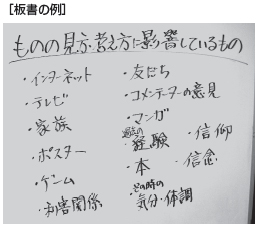 [板書の例]
ものの見方・考え方に影響しているもの
・インターネット
・テレビ
・家族
・ポスター
・ゲーム
・利害関係
・友だち
・コメンテーターの意見
・マンガ
・過去の経験
・本
・その時の気分・体調
・信仰
・信念